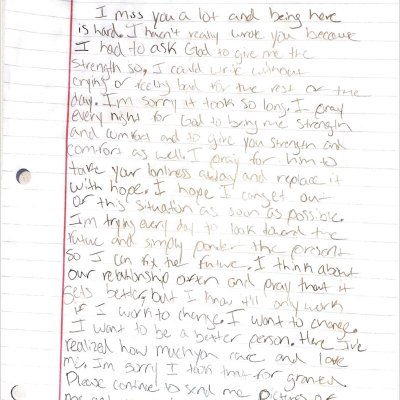 I miss you a lot and being here
is hard. I haven't really wrote you because
I had to ask God to give me the
strength so, I could write without
crying or feeling bad for the rest or the
day. I'm sorry it took so long. I pray
every night for God to bring me strength
and comfort and to give you strength and
comfort as well. I pray for him to
take your lonliness away and replace it
with hope. I hope I can get out
of this situation as soon as possible.
I'm trying every day to look toward the
future and simply ponder the present
so I can fix the future. I think about
our relationship often and pray that it
gets better, but I know it'll only work
if I work to change. I want to change.
I want to be a better person. Here I've
realized how much you care and love
me. I'm sorry I took that for granted.
Please continue to send me pictures of
me and